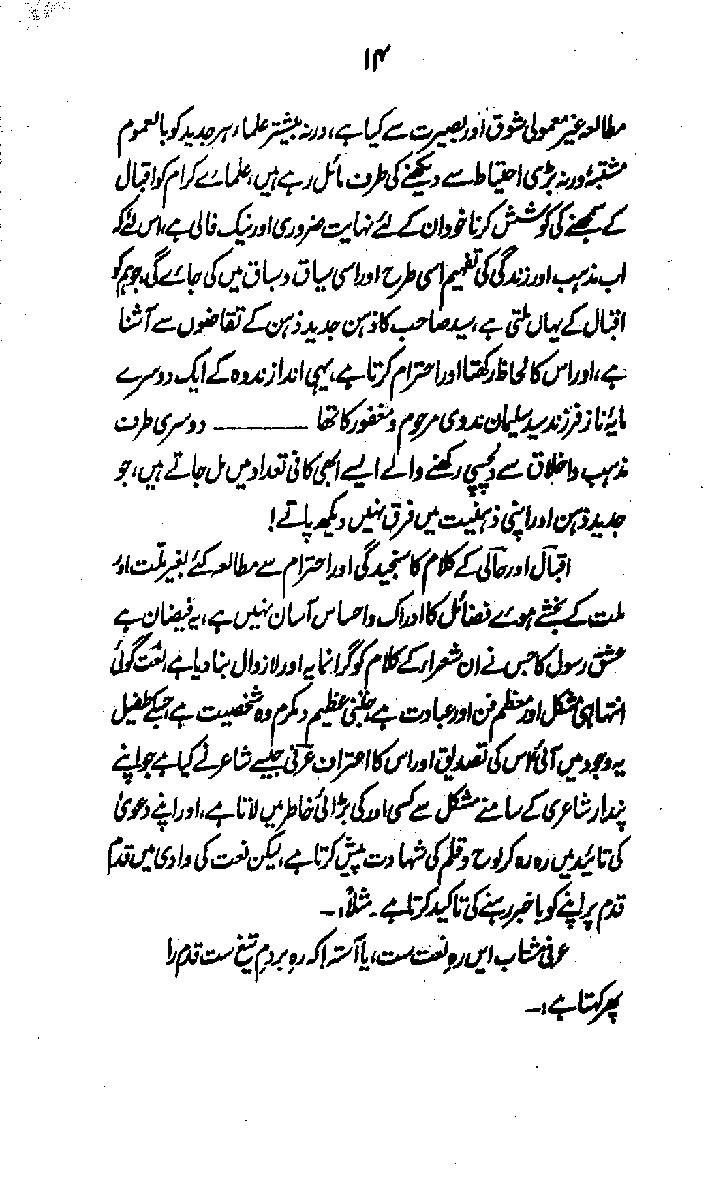 ۱۴
مطالعہ غیر معمولی شوق اور بصیرت سے کیا ہے، ورنہ بیشتر علماء ہر جدید کو بالعموم
مشتبہ ورنہ بڑی احتیاط سے دیکھنے کی طرف مائل رہے ہیں، علمائے کرام کو اقبال
کے سمجھنے کی کوشش کرنا خود ان کے لئے نہایت ضروری اور نیک فالی ہے، اس لئے کہ
اب مذہب اور زندگی کی تفہیم اسی طرح اور اسی سیاق و سباق میں کی جائے گی، جو ہم کو
اقبال کے یہاں ملتی ہے، سید صاحب کا ذہن جدید ذہن کے تقاضوں سے آشنا
ہے، اور اس کا لحاظ رکھتا اور احترام کرتا ہے، یہی انداز ندوہ کے ایک دوسرے
مایۂ ناز فرزند سید سلیمان ندوی مرحوم و مغفور کا تھا ——— دوسری طرف
مذہب و اخلاق سے دلچسپی رکھنے والے ایسے ابھی کافی تعداد میں مل جاتے ہیں، جو
جدید ذہن اور اپنی ذہنیت میں فرق نہیں دیکھ پاتے!
اقبال اور حالی کے کلام کا سنجیدگی اور احترام سے مطالعہ کئے بغیر ملت اور
ملت کے بخشے ہوئے فضائل کا ادراک و احساس آسان نہیں ہے، یہ فیضان ہے
عشق رسول کا جس نے ان شعراء کے کلام کو گرانمایہ اور لازوال بنا دیا ہے، نعت گوئی
انتہا ہی مشکل اور معظم فن اور عبادت ہے، جتنی عظیم و مکرم وہ شخصیت ہے، جسکے طفیل
یہ وجود میں آئی، اس کی تصدیق اور اس کا اعتراف عرفی جیسے شاعر نے کیا ہے جو اپنے
پندار شاعری کے سامنے مشکل سے کسی اور کی بڑائی خاطر میں لاتا ہے، اور اپنے دعویٰ
کی تائید میں رہ رہ کر لوح و قلم کی شہادت پیش کرتا ہے، لیکن نعت کی وادی میں قدم
قدم پر اپنے کو باخبر رہنے کی تاکید کرتا ہے۔ مثلاً:۔
عرفی مشتاب ایں رہ نعت ست، یا آہستہ کہ رہ بر دم تیغ ست قدم را
پھر کہتا ہے:۔